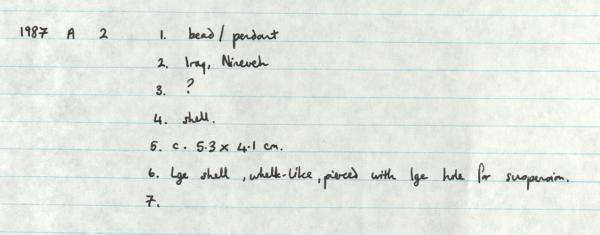 1987 A 2 1. bead / pendant
2. Iraq, Nineveh
3. ?
4. shell.
5. c. 5.3 x 4.1 cm.
6. Lge shell, whelk-like, pierced with lge hole for suspension.
7.